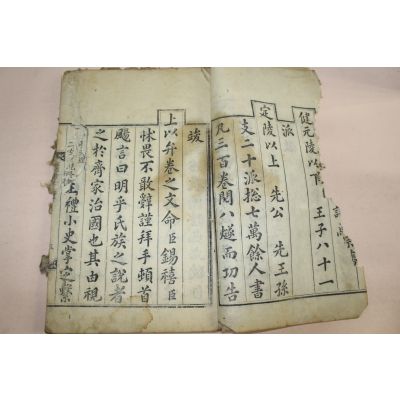 健元陵以下 王子八十一
派
定陵以上 先公 先王孫
支二十派捴七萬餘人書
凡三百卷閱八燧而功告
竣
上以弁卷之文命臣錫禧臣
怵畏不敢辭謹拜手頓首
颺言曰明乎氏族之說者
之於齊家治國也其由視
王禮小史掌定繫